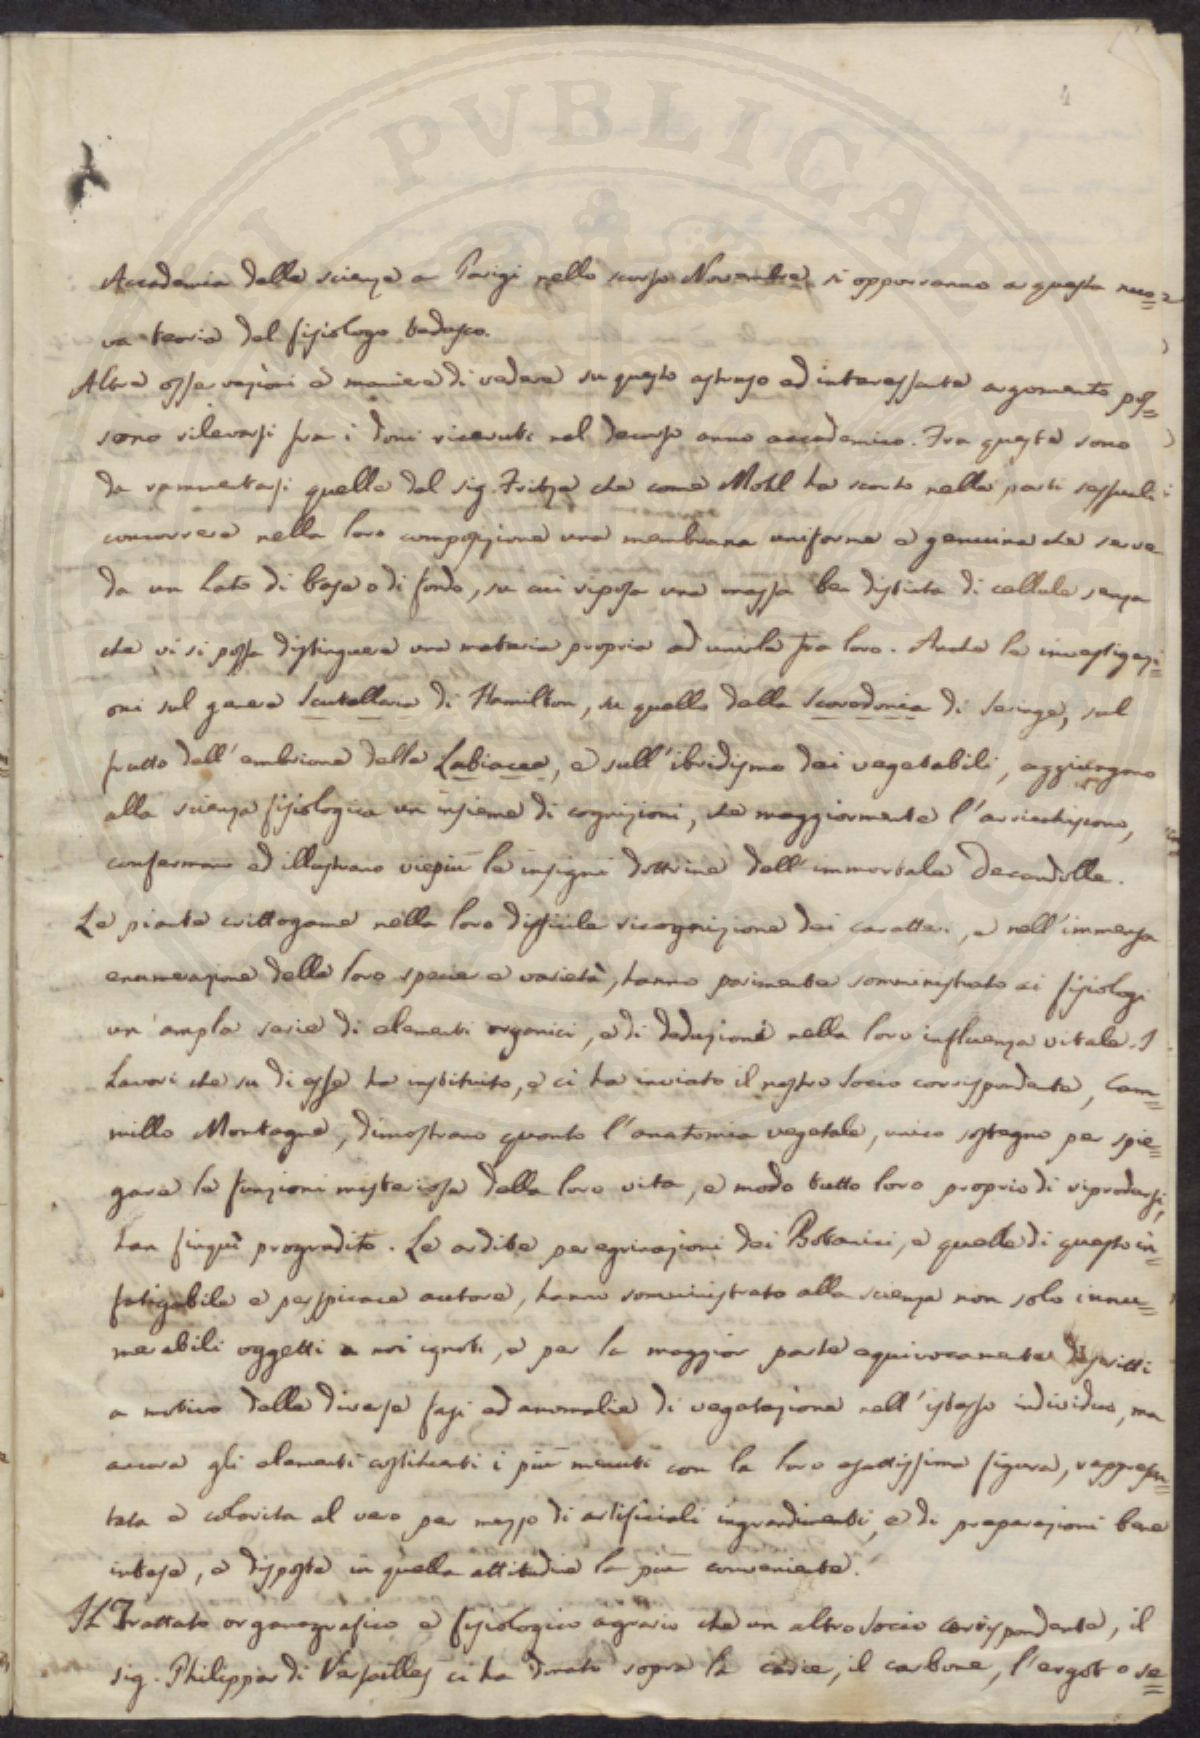 4
Accademia delle scienze a Parigi nello scorso Novembre si opporranno a questa nuo=
va teoria del fisiologo tedesco.
Altre osservazioni e maniere di vedere su questo astruso ed interessante argomento pos=
sono rilevarsi fra i doni ricevuti nel decorso anno accademico. Fra queste sono
da rammentarsi quelle del sig. Fritze che come Mohl ha scorto nelle parti sessuali
concorrere nella loro composizione una membrana uniforme e genuina che serve
da un lato di base o di fondo, su cui riposa una massa ben distinta di cellule senza
che vi si possa distinguere una materia propria ad unirle fra loro. Anche le investigazi=
oni sul genere Scutellaria di Hamilton, su quello della Scorodonia di Seringe, sul
frutto dell'embrione delle Labiacee, e sull'ibridismo dei vegetabili, aggiungono
alla scienza fisiologica un insieme di cognizioni, che maggiormente l'arricchiscono,
confermano ed illustrano viepiù le insigni dottrine dell'immortale Decandolle.
Le piante crittogame nella loro difficile ricognizione dei caratteri, e nell'immensa
enumerazione delle loro specie e varietà, hanno parimente somministrato ai fisiologi
un'ampla serie di elementi organici, e di deduzioni nella loro influenza vitale. I
Lavori che su di esse ha instituito, e ci ha inviato il nostro Socio corrispondente, Cam=
millo Montagne, dimostrano quanto l'anatomia vegetale, unico sostegno per spie=
gare le funzioni misteriose della loro vita, e modo tutto loro proprio di riprodursi,
han finquì progredito. Le ardite peregrinazioni dei Botanici, e quelle di questo in=
fatigabile e perspicace autore, hanno somministrato alla scienza non solo innu=
merabili oggetti a noi ignoti, e per la maggior parte equivocamente descritti
a motivo delle diverse fasi ed anomalie di vegetazione nell'istesso individuo, ma
ancora gli elementi costituenti i più minuti con la loro esattissima figura, rappresen=
tata e colorita al vero per mezzo di artificiali ingrandimenti, e di preparazioni bene
intese, e disposte in quella attitudine la più conveniente.
Il Trattato organografico e fisiologico agrario che un altro Socio corrispondente, il
sig. Philippar di Versailles ci ha donato sopra la carie, il carbone, l'ergot o se=